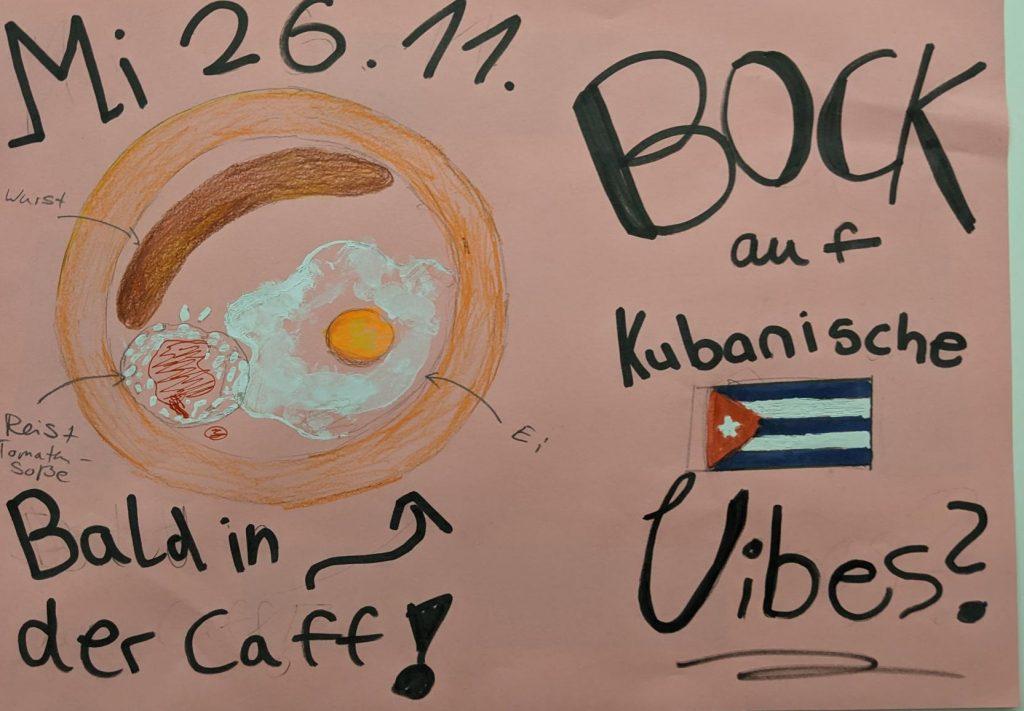 Mi 26.11.
Wurst
Reis +
Tomaten-
Soße
Ei
Bald in
der Caff!
BOCK
auf
Kubanische
Vibes?